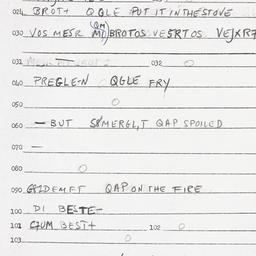 024 BROT+ QGLE PUT IT IN THE STOVE
QM
030 VOS MESR BROTOS VESRTOS VEJXR7
031 032
040 PREGLEN QGLE FRY
050
060 — BUT SMERGL,T QAP SPOILED
070 —
080
090 QAP ON THE FIRE
100 DI BESTE-
101 BEST+ 102
103